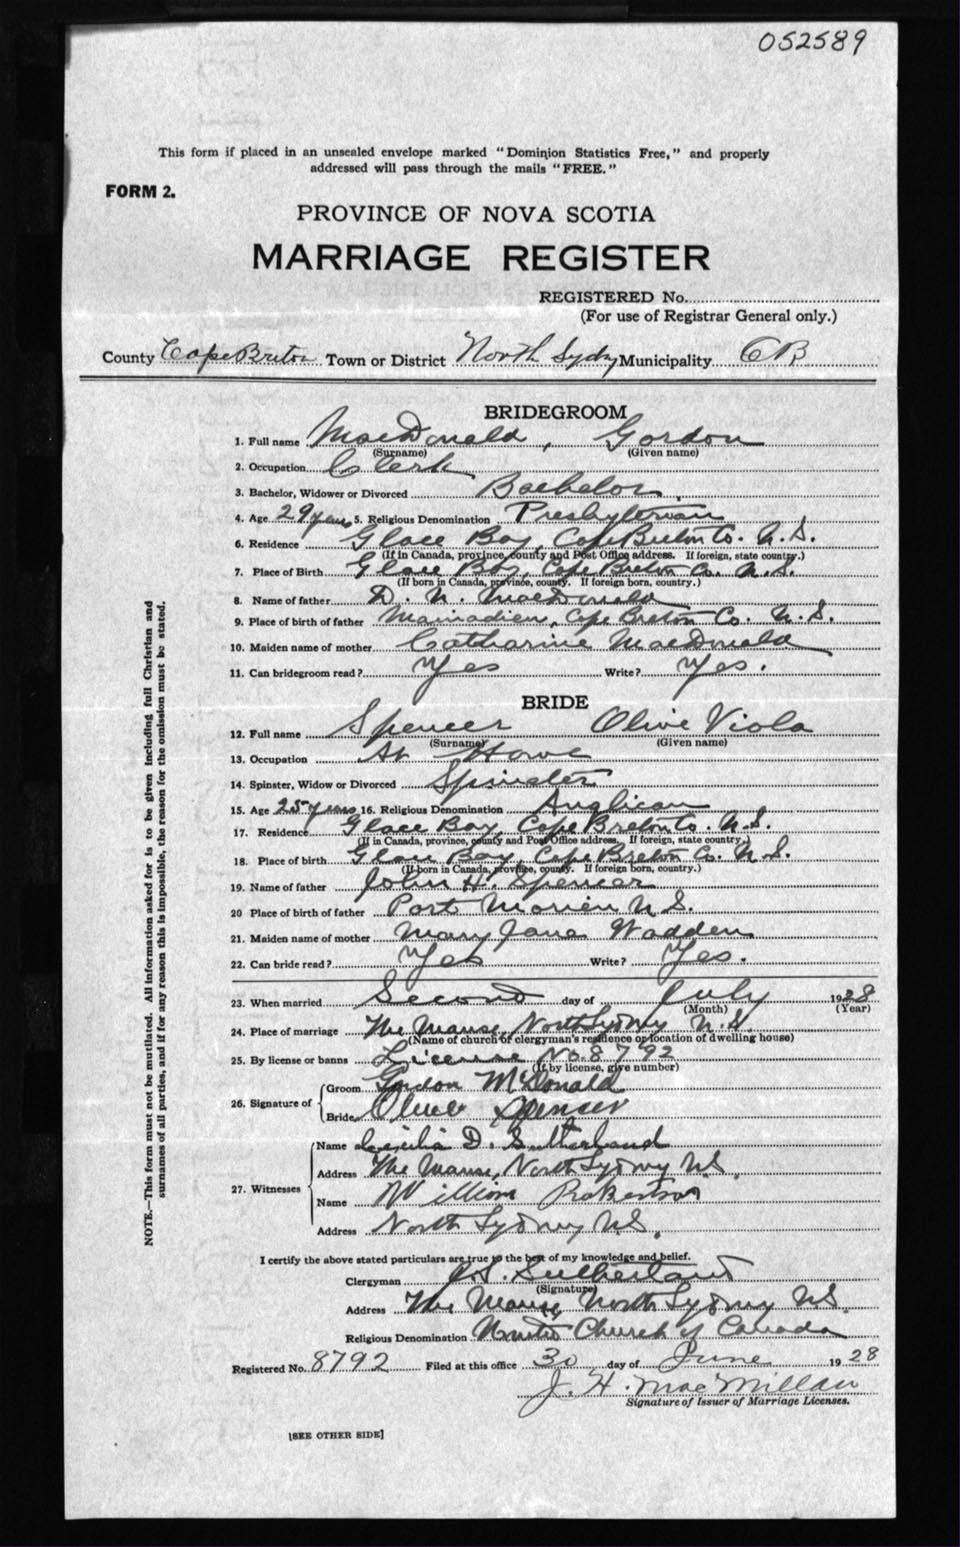 052589
This form if placed in an unsealed envelope marked "Dominion Statistics Free," and properly
addressed will pass through the mails "FREE."
FORM 2.
PROVINCE OF NOVA SCOTIA
MARRIAGE REGISTER
REGISTERED No.
(For use of Registrar General only.)
County Cape Breton Town or District North Sydny Municipality CB
BRIDEGROOM
1. Full name MacDonald, Gordon
(Surname) (Given name)
2. Occupation Clerk
3. Bachelor, Widower or Divorced Bachelor.
4. Age 29 years 5. Religious Denomination Presbyterian
6. Residence Glace Bay, Cape Breton Co. N.S.
(If in Canada, province, county and Post Office address. If foreign, state country.)
7. Place of Birth Glace Bay, Cape Breton Co. N.S.
(If born in Canada, province, county. If foreign born, country.)
8. Name of father D. N. MacDonald
9. Place of birth of father Mainadieu, Cape Breton Co. N.S.
10. Maiden name of mother Catharine MacDonald
11. Can bridegroom read? Yes Write? Yes.
BRIDE
12. Full name Spencer Olive Viola
(Surname) (Given name)
13. Occupation At Home
14. Spinster, Widow or Divorced Spinster
15. Age 25 years 16. Religious Denomination Anglican
17. Residence Glace Bay, Cape Breton Co. N.S.
(If in Canada, province, county and Post Office address. If foreign, state country.)
18. Place of birth Glace Bay, Cape Breton Co. N.S.
(If born in Canada, province, county. If foreign born, country.)
19. Name of father John H. Spencer
20 Place of birth of father Port Morien N.S.
21. Maiden name of mother Mary Jane Wadden
22. Can bride read? Yes Write? Yes.
23. When married Second day of July 1928
(Month) (Year)
24. Place of marriage The Manse, North Sydney N.S.
(Name of church or clergyman's residence or location of dwelling house)
25. By license or banns License No. 8792
(If by license, give number)
26. Signature of
Groom Gordon McDonald
Bride Olive Spencer
27. Witnesses
Name Cecilia D. Sutherland
Address The Manse, North Sydney N.S.
Name William Robertson
Address North Sydney N.S.
I certify the above stated particulars are true to the best of my knowledge and belief.
Clergyman Sutherland
(Signature)
Address The Manse, North Sydney N.S.
Religious Denomination United Church of Canada
Registered No. 8792 Filed at this office 30 day of June 1928
J. H. MacMillan
Signature of Issuer of Marriage Licenses.
[SEE OTHER SIDE]
NOTE.—This form must not be mutilated. All information asked for is to be given including full Christian and
surnames of all parties, and if for any reason this is impossible, the reason for the omission must be stated.